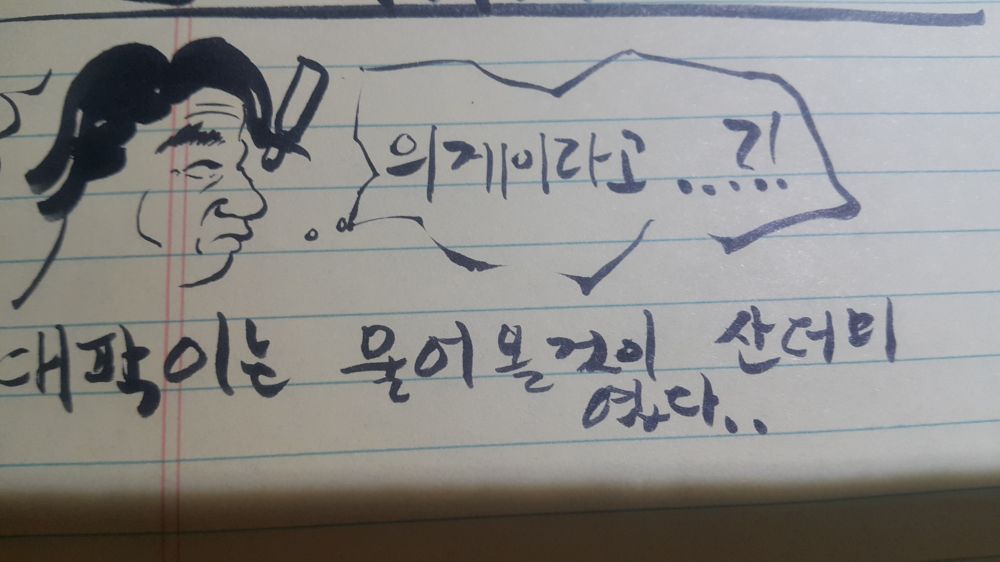 의게이라고 .....?!
대팍이는 물어볼것이 산더미
였다..